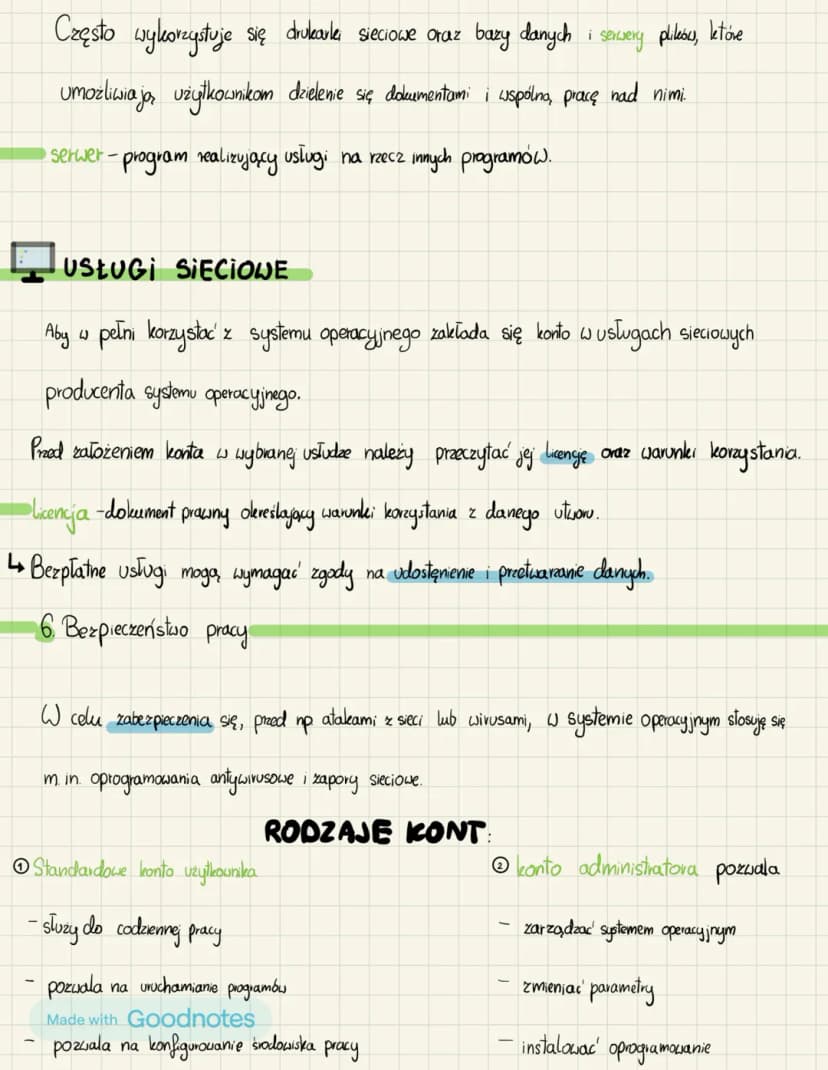 Często wykorzystuje się drukarki sieciowe oraz bazy danych i serwery plików, które
umożliwiają użytkownikom dzielenie się dokumentami i wspólną pracę nad nimi.
serwer - program realizujący usługi na rzecz innych programów.
USŁUGi SiECiOWE
Aby w pełni korzystać z systemu operacyjnego zakłada się konto w usługach sieciowych
producenta systemu operacyjnego.
Przed założeniem konta w wybranej usłudze należy przeczytać jej licencję oraz warunki korzystania.
licencja - dokument prawny określający warunki korzystania z danego utworu.
↳ Bezpłatne usługi mogą wymagać zgody na udostępnienie i przetwarzanie danych.
6. Bezpieczeństwo pracy
W celu zabezpieczenia się, przed np atakami z sieci lub wirusami, w systemie operacyjnym stosuję się
m. in. oprogramowania antywirusowe i zapory sieciowe.
RODZAJE KONT:
① Standardowe konto użytkownika
- służy do codziennej pracy
- pozwala na uruchamianie programów
- pozwala na konfigurowanie środowiska pracy
② konto administratora pozwala
- zarządzać systemem operacyjnym
- zmieniać parametry
- instalować oprogramowanie
Made with Goodnotes